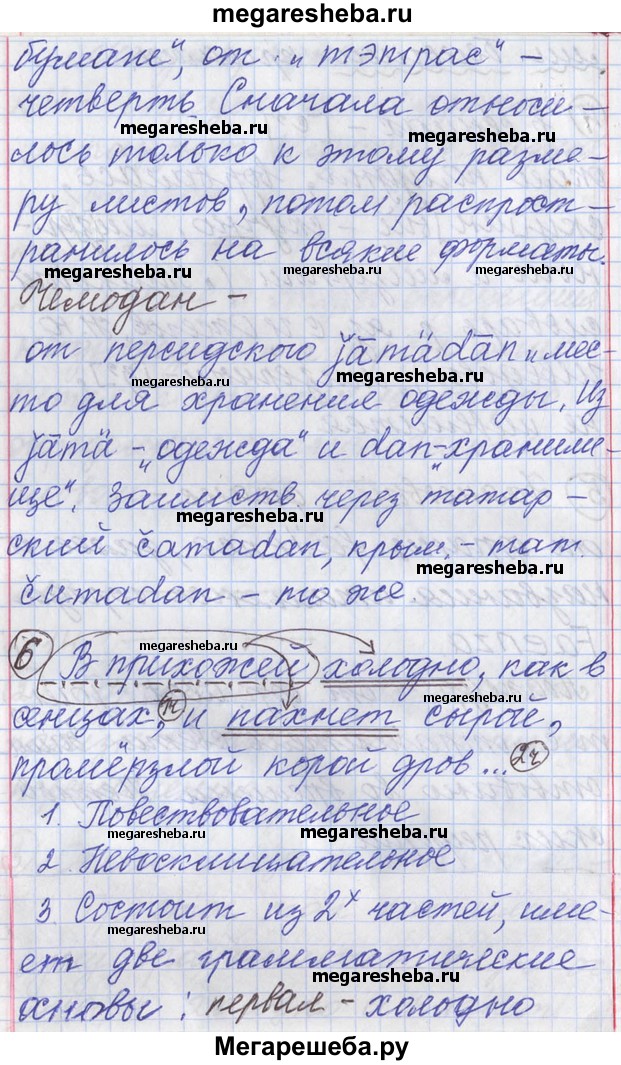 megaresheba.ru
бумаге", от "тэтрас" –
четверть. Сначала относи–
megaresheba.ru megaresheba.ru
лось только к этому разме–
ру листов, потом распрост–
ранилось на всякие форматы.
megaresheba.ru megaresheba.ru megaresheba.ru
Чемодан –
от персидского jāmädān „мес–
megaresheba.ru megaresheba.ru
то для хранения одежды. Из
jāmä – „одежда" и dan – „храни­ли–
ще". Заимств. через татар–
megaresheba.ru
ский čamadan, крым. – тат.
megaresheba.ru
čumadan – то же.
megaresheba.ru
6 В прихожей холодно, как в
megaresheba.ru
сенцах, и пахнет сырой,
промёрзлой корой дров... 2ч
1. Повествовательное
megaresheba.ru megaresheba.ru
2. Невосклицательное
3. Состоит из 2х частей, име–
megaresheba.ru
ет две грамматические
megaresheba.ru
основы: первая – холодно
Мегарешеба.ру